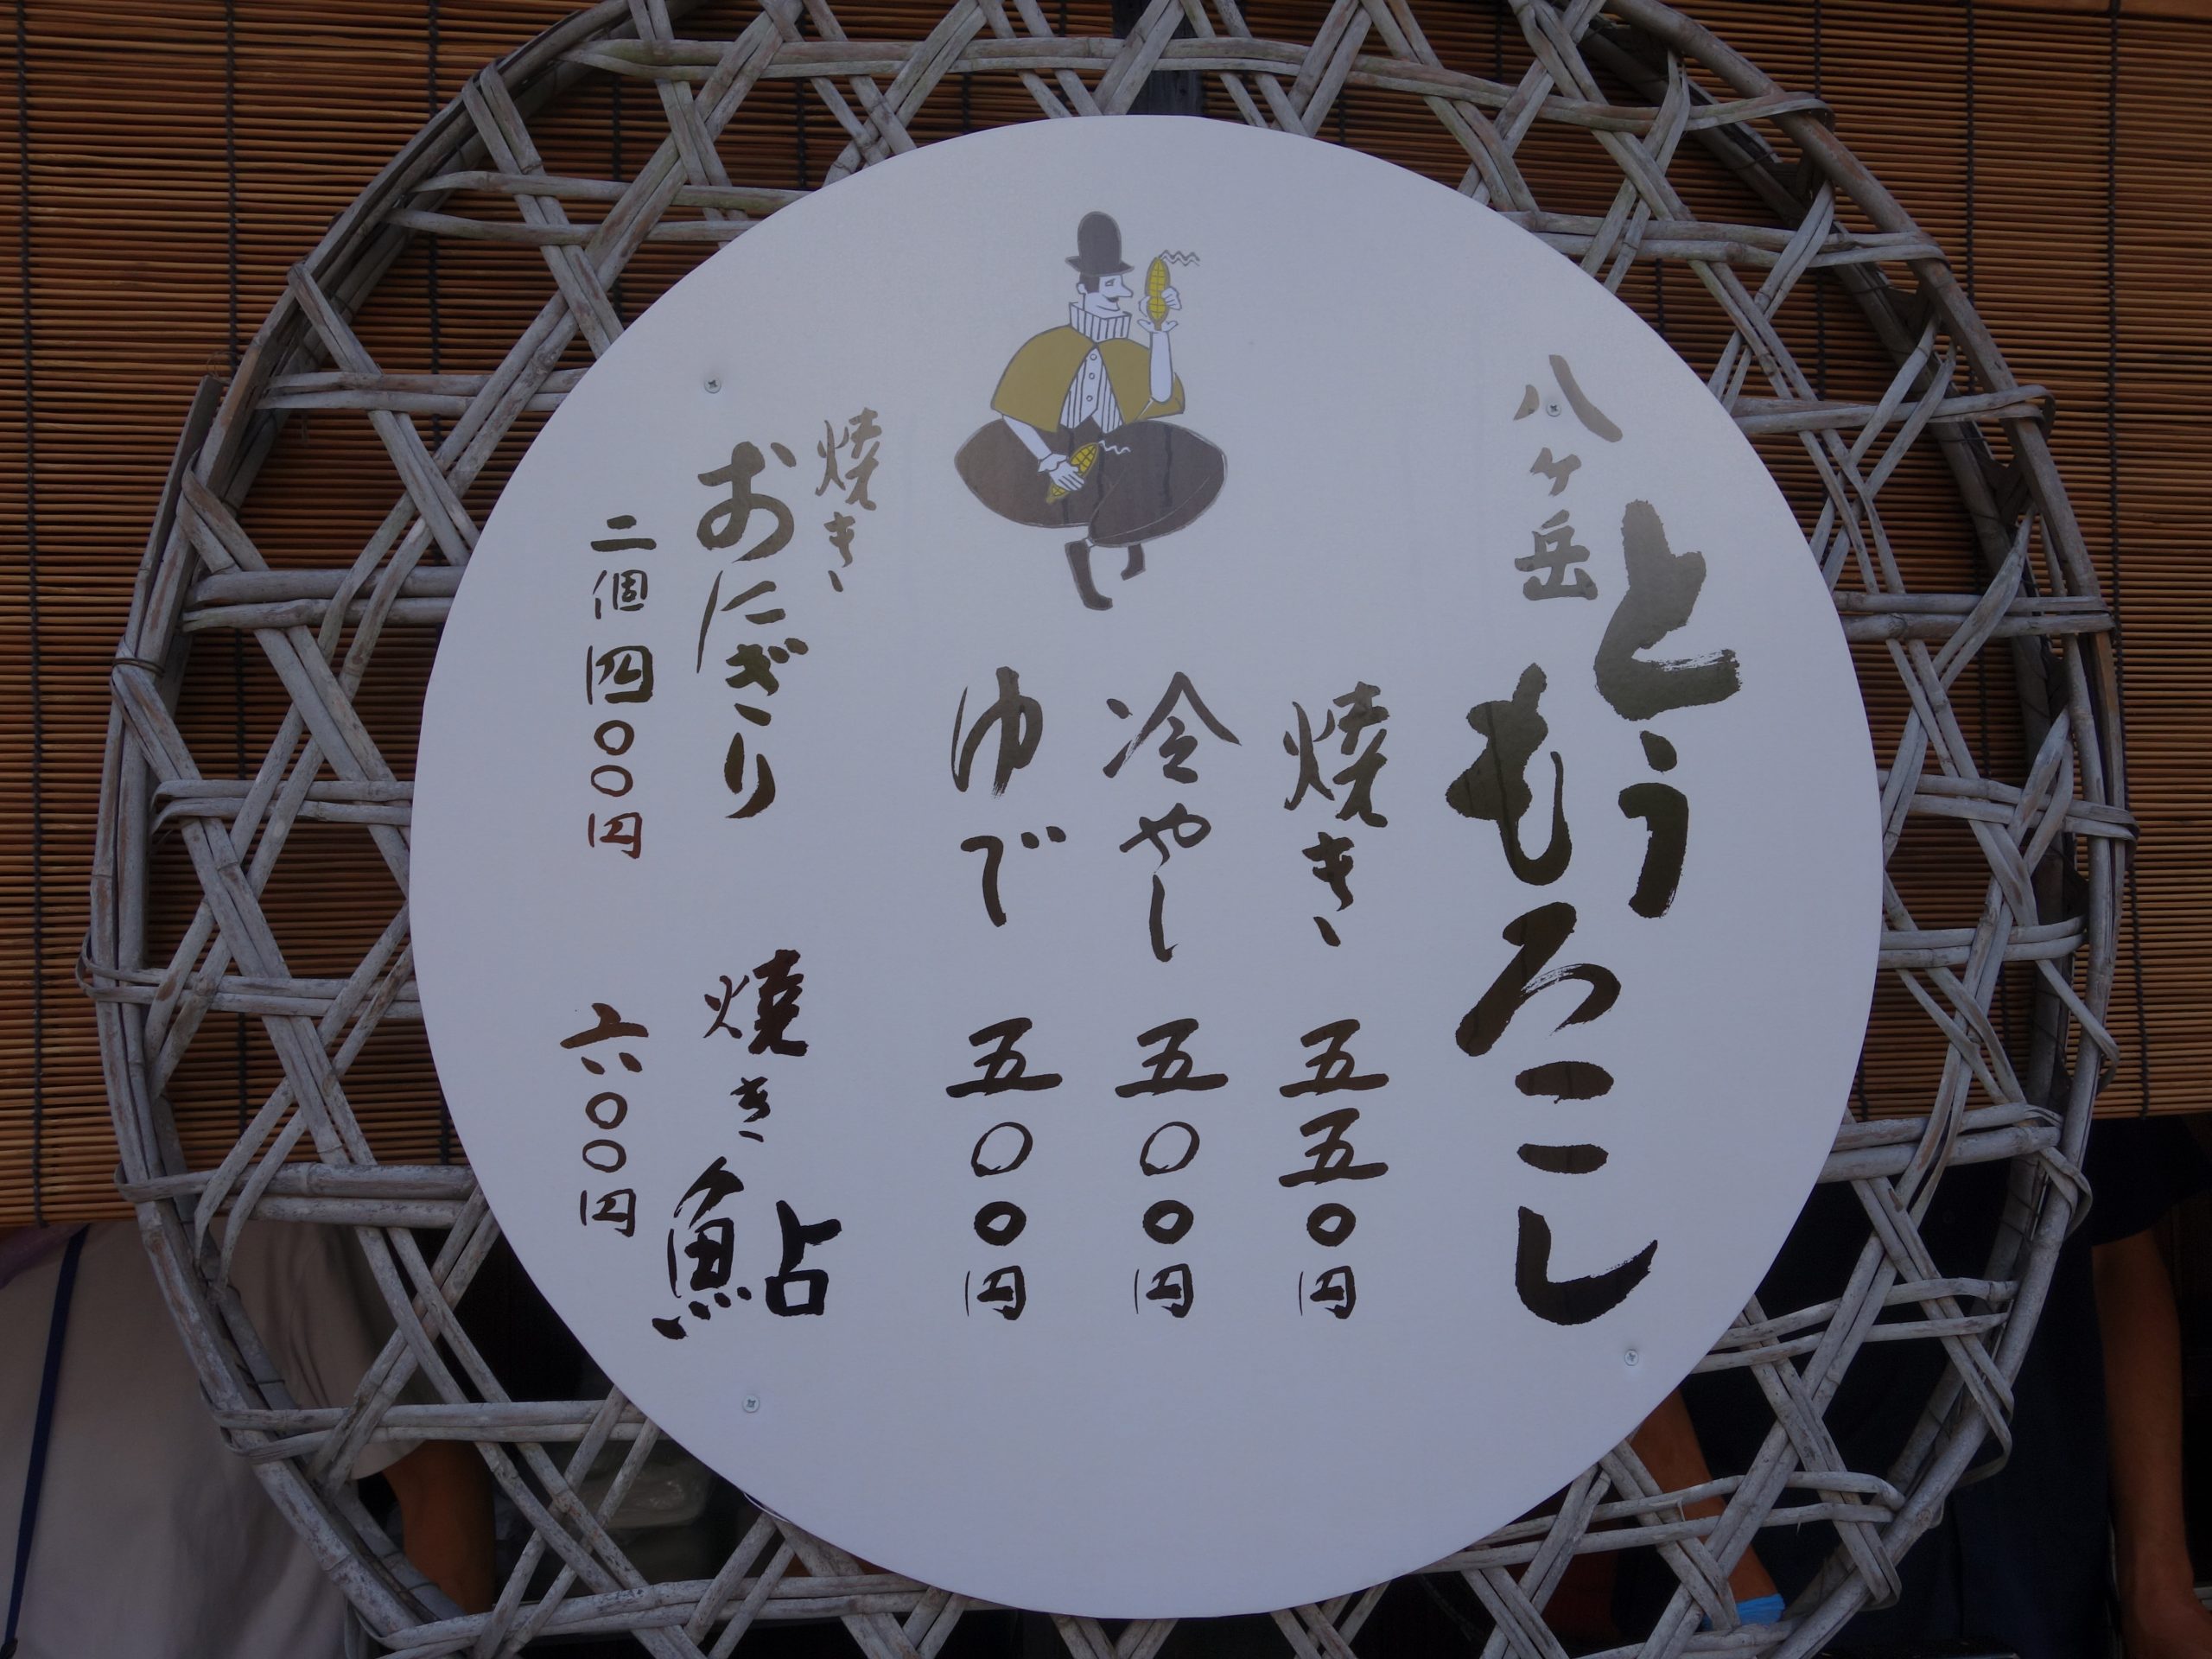 八ヶ岳
とうもろこし
焼き 五五〇円
冷やし 五〇〇円
ゆで 五〇〇円
焼き
おにぎり
二個 四〇〇円
焼き鮎
六〇〇円